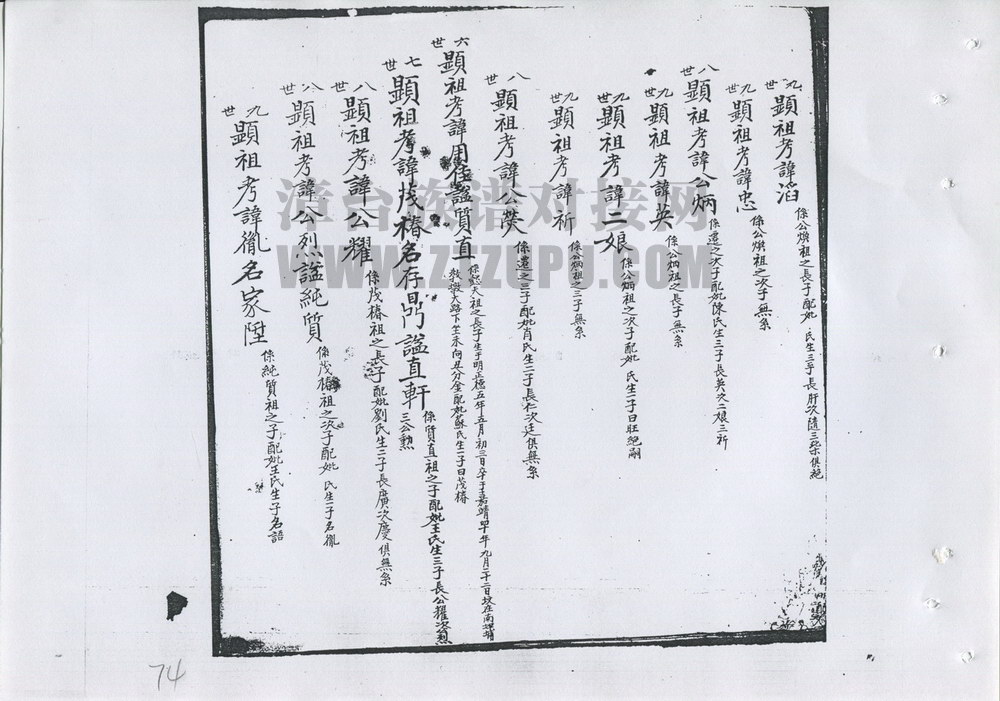 九世
顯祖考諱滔
係公㷼祖之長子配妣 氏生三子長肝次隨三 俱絕
九世
顯祖考諱忠
係公㷼祖之次子無系
八世
顯祖考諱公炳
係遷之次子配妣陳氏生三子長英次二娘三祈
九世
顯祖考諱英
係公炳祖之長子無系
九世
顯祖考諱二娘
係公炳祖之次子配妣 氏生一子曰旺絕嗣
九世
顯祖考諱祈
係公炳祖之三子無系
八世
顯祖考諱公㷼
係遷之三子配妣肖氏生二子長仁次廷俱無系
六世
顯祖考諱用 諡質直
係 祖之長子生于明正德五年五月初三日卒于嘉靖 年九月二十二日坟在南
敦大路下坐未向丑分金配妣蘇氏生一子曰茂椿
七世
顯祖考諱茂椿名存鼎諡直軒
係質直祖之子配妣王氏生三子長公耀次公烈
三公勲
八世
顯祖考諱公耀
係茂椿祖之長子配妣劉氏生二子長廣次慶俱無系
八世
顯祖考諱公烈諡純質
係茂椿祖之次子配妣 氏生一子名胤
九世
顯祖考諱胤名家陞
係純質祖之子配妣王氏生一子名語
漳台族谱对接网
WWW.ZTZUPU.COM
74